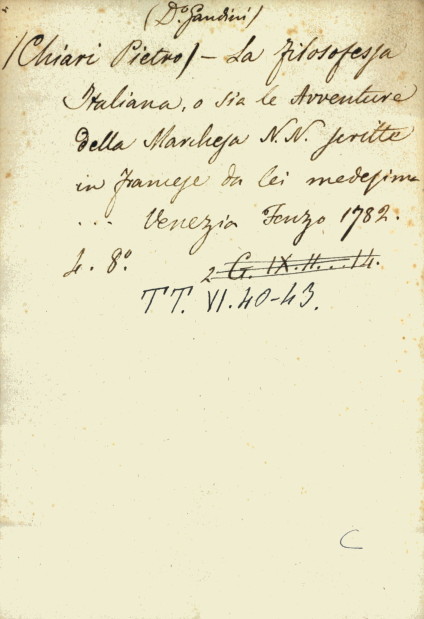 (D.º Gandini)
(Chiari Pietro) - La Filosofessa
Italiana, o sia le Avventure
della Marchesa N.N. scritte
in francese da lei medesima
... Venezia Fenzo 1782.
4. 8º. 2 G. IX. II...14.
TT. VI. 40-43.
C